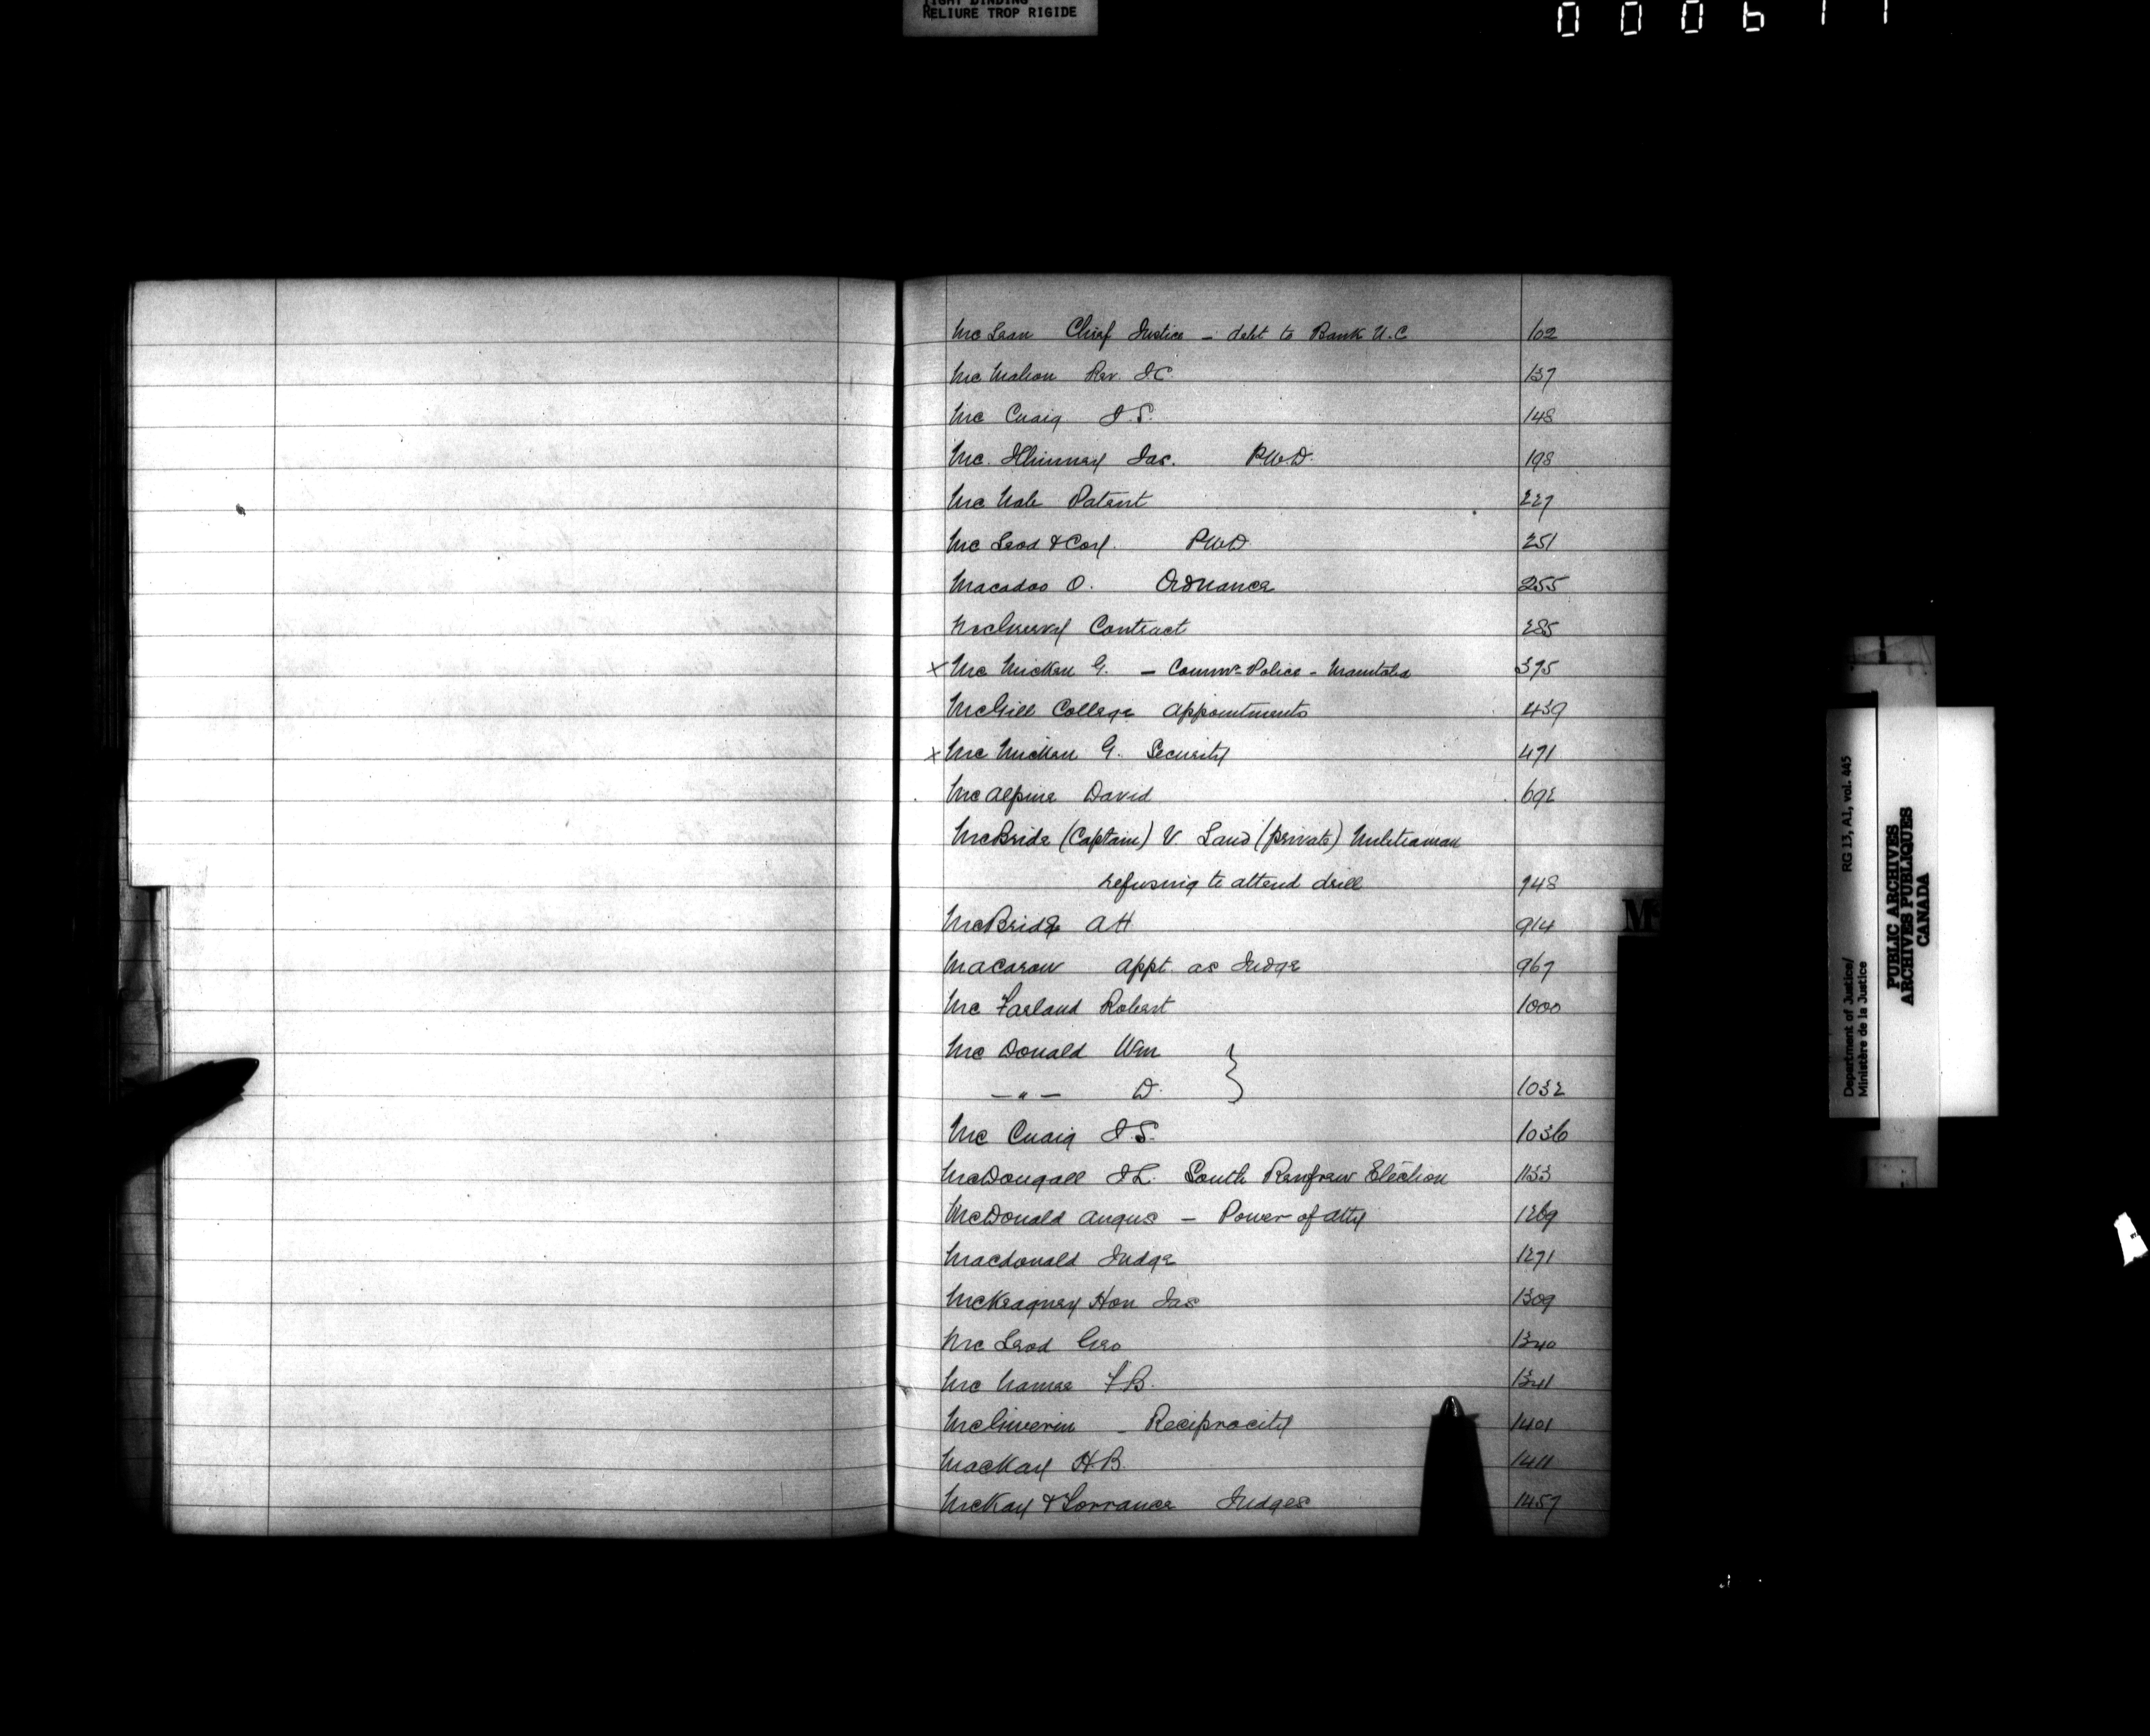 TIGHT BINDING
RELIURE TROP RIGIDE
McLean Chief Justice - debt to Bank U.C 102
McMahon Rev. J C. 137
McCuaig J. S. 148
Mc. Ilhinney Jas. P.W.D. 198
McNab Patent 227
McLeod & Coy. PWD 251
Macadoo O. Ordnance 255
McGreevy Contract 285
x McMicken G. - Commr Police - Manitoba 375
McGill College Appointments 439
x McMicken G. Security 471
McAlpine David 692
McBride (Captain) V. Land (private) Militiaman
refusing to attend drill 948
McBride A H 914
Macarow Appt. as Judge 967
McFarland Robert 1000
McDonald Wm }
- " - D. } 1032
McCuaig J. S. 1036
McDougall J L. South Renfrew Election 1133
McDonald Angus - Power of Atty 1269
Macdonald Judge 1271
McKeagney Hon Jas 1309
McLeod Geo 1340
McNamee F. B. 1341
McGiverin - Reciprocity 1401
MacKay H. B. 1411
McKay & Torrance Judges 1457
Mc
Department of Justice/
Ministère de la Justice
RG 13, A1, vol. 445
PUBLIC ARCHIVES
ARCHIVES PUBLIQUES
CANADA